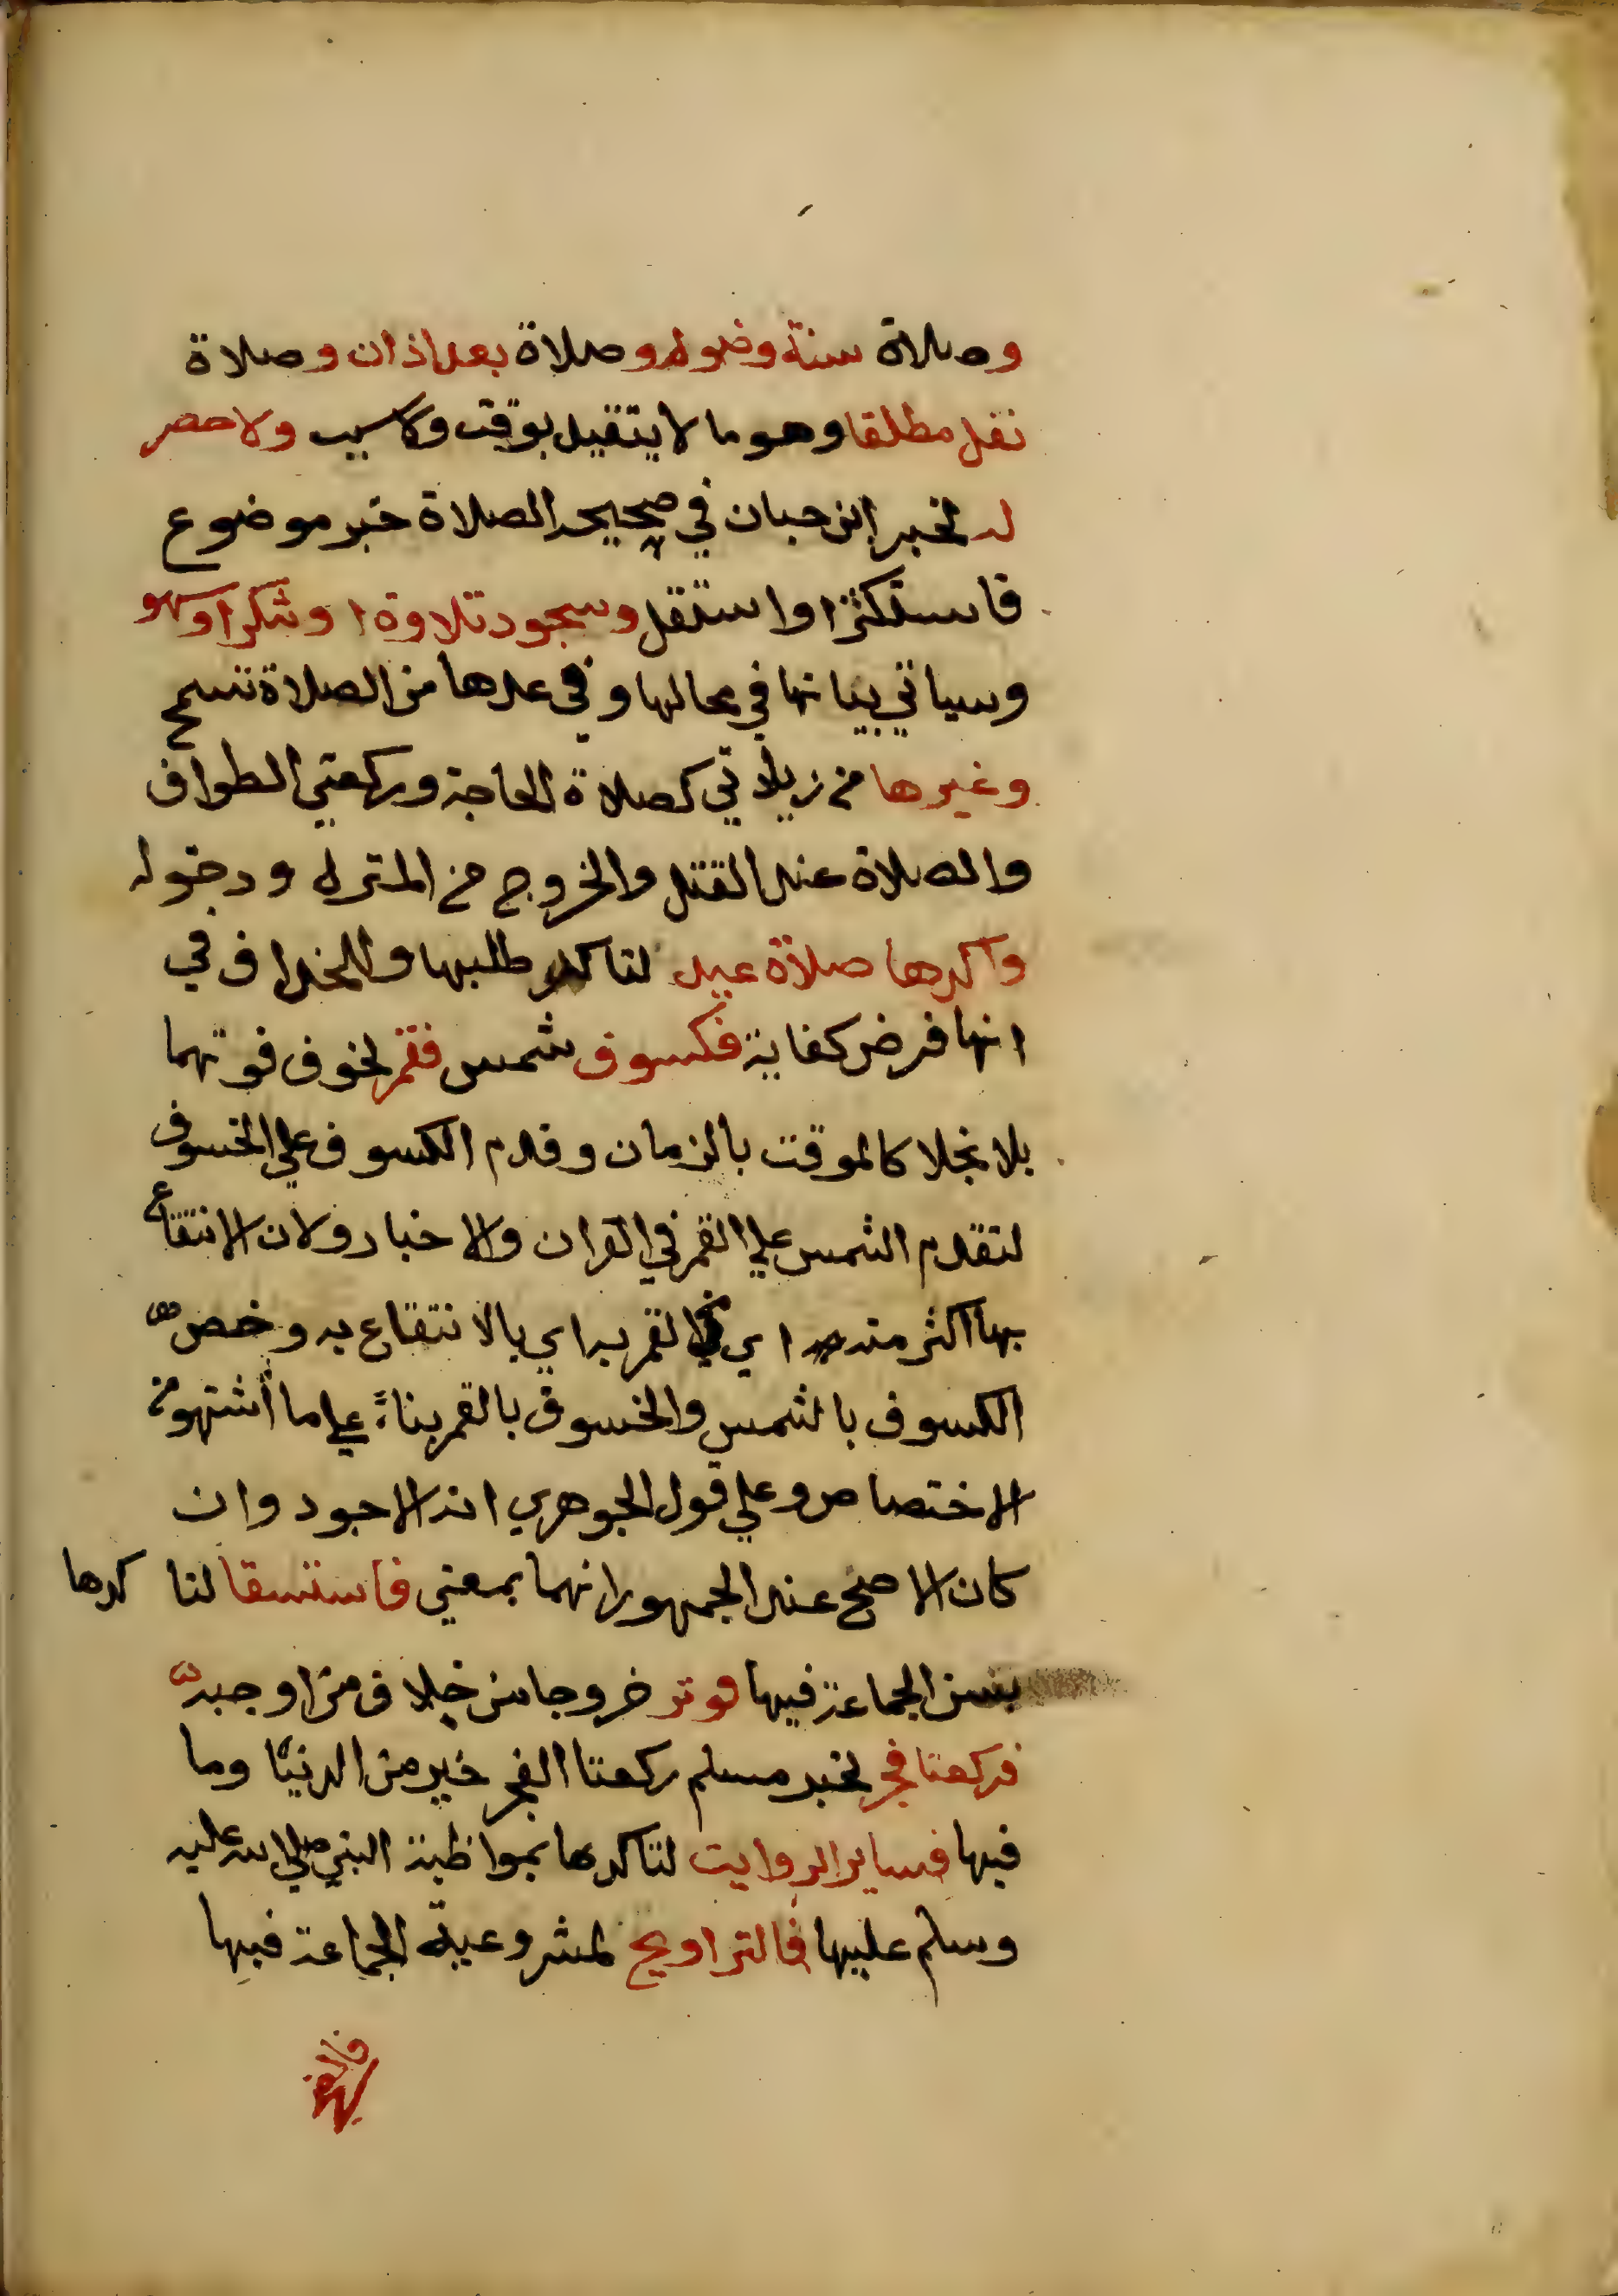 وصلاة سنة وضوله وصلاة بعد اذان وصلاة
نفل مطلقا وهو ما لا يتقيد بوقت ولا سبب ولا حصر
له لخبر ابن حبان في صحيحه الصلاة خبر موضوع
فاستكثر او استقل وسجود تلاوة او شكر او سهو
وسياتي بيانها في محالها وفي عدها من الصلاة تسمح
وغيرها من زيادتي كصلاة الحاجة وركعتي الطواف
والصلاة عند القتل والخروج من المنزل ودخوله
واكدها صلاة عيد لتاكد طلبها والخلاف في
انها فرض كفاية فكسوف شمس فقمر لخوف فوتهما
بلانجلا كالموقت بالزمان وقدم الكسوف علي الخسوف
لتقدم الشمس علي القمر في القران والاخبار ولان الانتفاع
بها اكثر منه اي القمر به اي بالانتفاع به وخص
الكسوف بالشمس والخسوف بالقمر بناءً علي ما أشتهر من
الاختصاص وعلي قول الجوهري انه الاجود وان
كان الاصح عند الجمهور انهما بمعني فاستسقا لتا كدها
بسن الجماعة فيها فوتر خروجا من خلاف من اوجبه
فركعتا فجر لخبر مسلم ركعتا الفجر خير من الدنيا وما
فيها فساير الروايت لتاكدها بمواظبة النبي صلي الله عليه
وسلم عليها فالتراويح لمشروعية الجماعة فيها